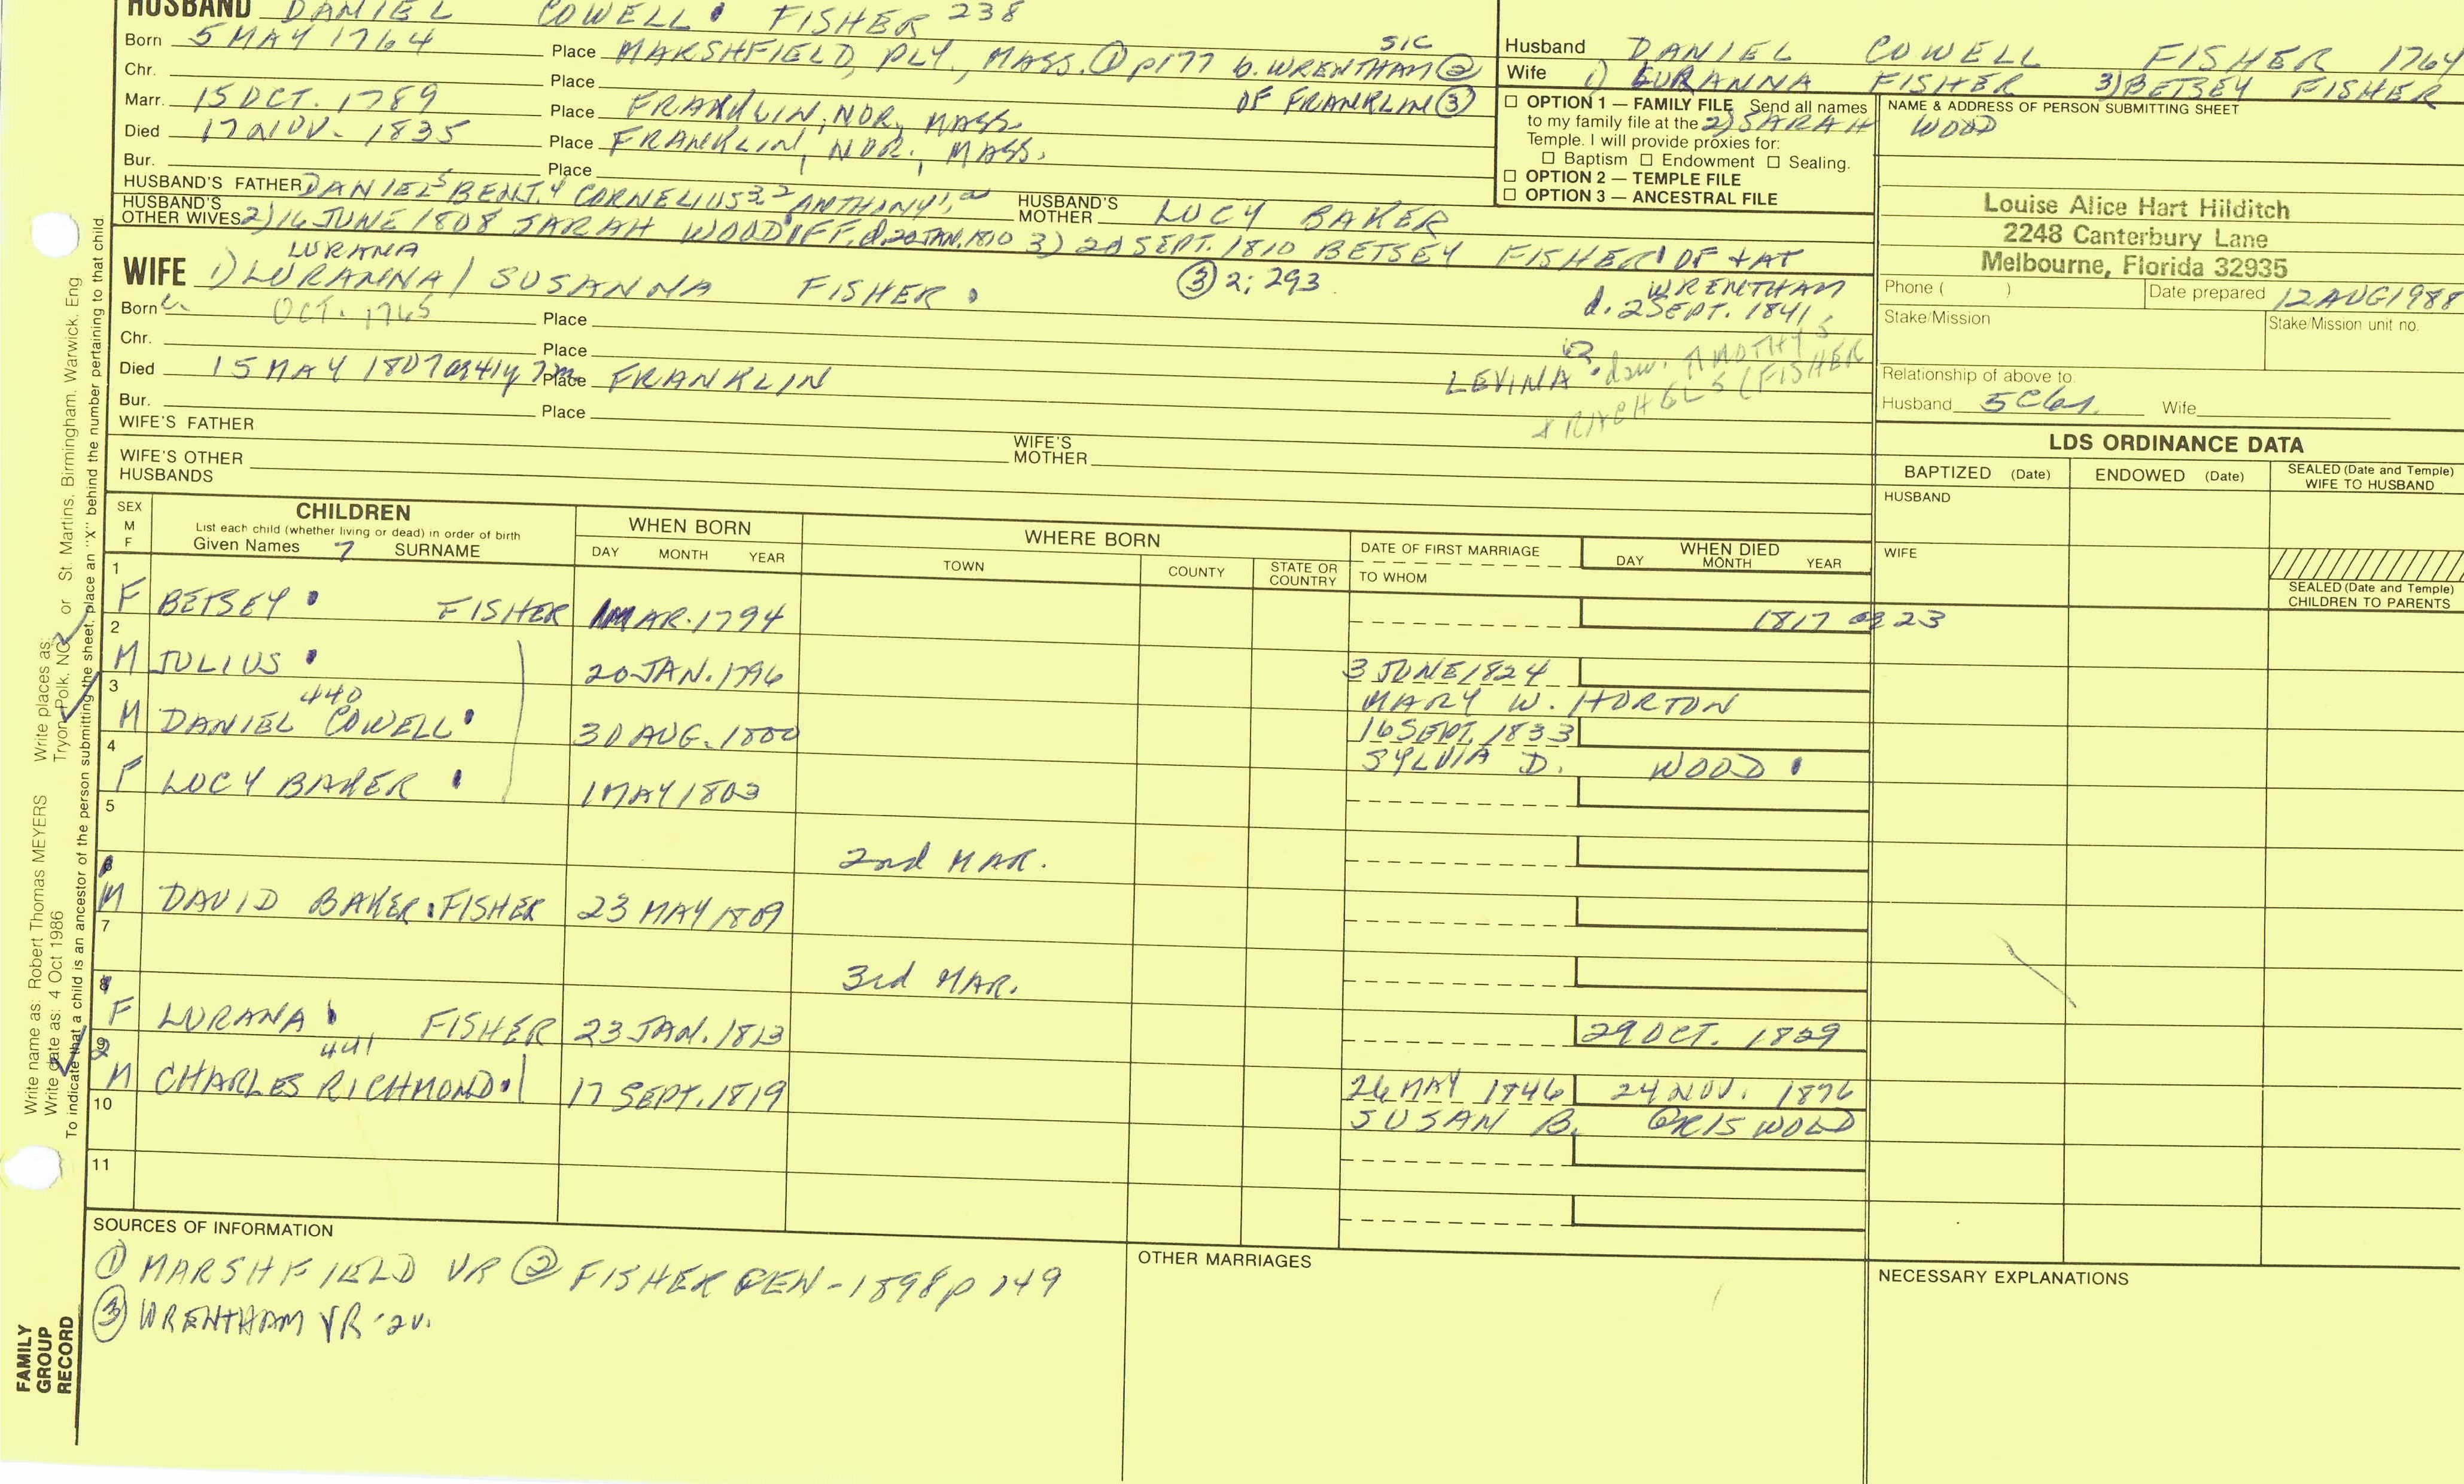 HUSBAND DANIEL COWELL FISHER 238
Born 5 MAY 1764 Place MARSHFIELD, PLY., MASS. ① p177 b. WRENTHAM ② SIC
Chr. Place OF FRANKLIN ③
Marr. 15 OCT. 1789 Place FRANKLIN, NOR, MASS.
Died 17 NOV. 1835 Place FRANKLIN, NOR., MASS.
Bur. Place
HUSBAND'S FATHER DANIEL5 BENJ.4 CORNELIUS3,2 ANTHONY1, HUSBAND'S MOTHER LUCY BAKER
HUSBAND'S OTHER WIVES 2) 16 JUNE 1808 SARAH WOOD d. 20 JAN. 1810 3) 20 SEPT. 1810 BETSEY FISHER OF + AT
WRENTHAM
d. 2 SEPT. 1841
LURANA
WIFE 1) LURANNA / SUSANNA FISHER ③ 2; 293
Born OCT. 1765 Place
Chr. Place
Died 15 MAY 1807 ag 41y 7m Place FRANKLIN
LEVINA daw. TIMOTHY5
& RACHEL5 (FISHER
Bur. Place
WIFE'S FATHER WIFE'S MOTHER
WIFE'S OTHER HUSBANDS
Husband DANIEL COWELL FISHER 1764
Wife 1) LURANNA FISHER 3) BETSEY FISHER
2) SARAH WOOD
☐ OPTION 1 — FAMILY FILE Send all names
to my family file at the
Temple. I will provide proxies for:
☐ Baptism ☐ Endowment ☐ Sealing.
☐ OPTION 2 — TEMPLE FILE
☐ OPTION 3 — ANCESTRAL FILE
NAME & ADDRESS OF PERSON SUBMITTING SHEET
Louise Alice Hart Hilditch
2248 Canterbury Lane
Melbourne, Florida 32935
Phone ( ) Date prepared 12 AUG 1988
Stake/Mission Stake/Mission unit no.
Relationship of above to:
Husband Wife
LDS ORDINANCE DATA
BAPTIZED (Date) ENDOWED (Date) SEALED (Date and Temple) WIFE TO HUSBAND
HUSBAND
WIFE
SEALED (Date and Temple) CHILDREN TO PARENTS
SEX M F
CHILDREN
List each child (whether living or dead) in order of birth
Given Names 7 SURNAME
WHEN BORN
DAY MONTH YEAR
WHERE BORN
TOWN COUNTY STATE OR COUNTRY
DATE OF FIRST MARRIAGE
TO WHOM
WHEN DIED
DAY MONTH YEAR
1 F BETSEY FISHER MAR. 1794 1817 ag 23
2 M JULIUS 20 JAN. 1796 3 JUNE 1824
MARY W. HORTON
3 M DANIEL COWELL 440 30 AUG. 1800 16 SEPT. 1833
SYLVIA D. WOOD
4 F LUCY BAKER 1 MAY 1803
5 2nd MAR.
6 M DAVID BAKER FISHER 23 MAY 1809
7 3rd MAR.
8 F LURANA FISHER 23 JAN. 1813 29 OCT. 1829
9 M CHARLES RICHMOND 441 17 SEPT. 1819 26 MAY 1846 24 NOV. 1896
SUSAN B. GRISWOLD
10
11
SOURCES OF INFORMATION
① MARSHFIELD VR ② FISHER GEN - 1898 p 149
③ WRENTHAM VR - 2v.
OTHER MARRIAGES
NECESSARY EXPLANATIONS
Write name as: Robert Thomas MEYERS Write places as: St. Martins, Birmingham, Warwick, Eng
Write date as: 4 Oct 1986 Tryon, Polk, NC or
To indicate that a child is an ancestor of the person submitting the sheet, place an "X" behind the number pertaining to that child.
FAMILY GROUP RECORD